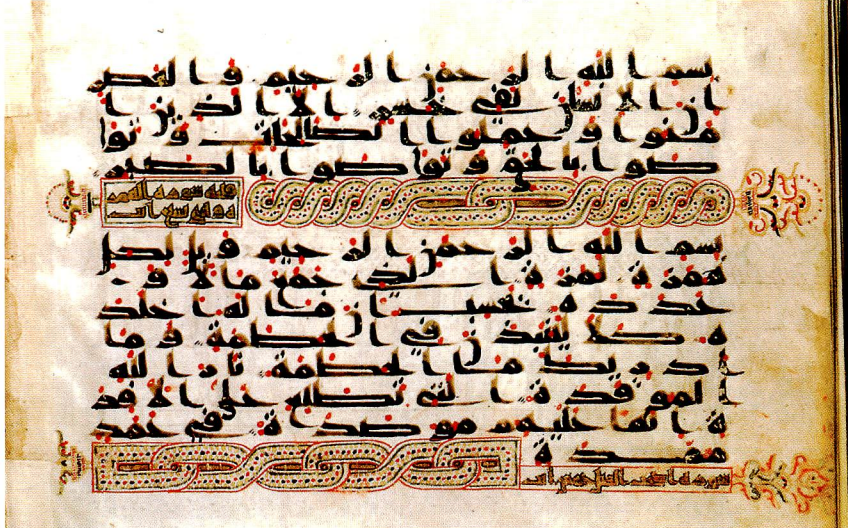 بسم الله الرحمن الرحيم والعصر
إن الإنسان لفي خسر إلا الذين آ
منوا وعملوا الصالحات وتوا
صوا بالحق وتواصوا بالصبر
بسم الله الرحمن الرحيم ويل لكل
همزة لمزة الذي جمع مالا و
عدده يحسب أن ماله أخلد
ه كلا لينبذن في الحطمة وما
أدريك ما الحطمة نار الله
الموقدة التي تطلع على الأفئد
ة إنها عليهم موصدة في عمد
ممددة